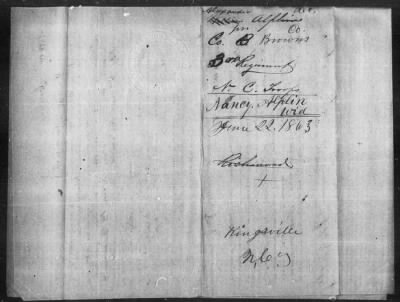 Alexander Dec.
Alphin
Co. B Browns Co.
3rd Regiment
N. C. Troops
Nancy Alphin
wid
June 22. 1863
Richmond
Kingsville
N. C.